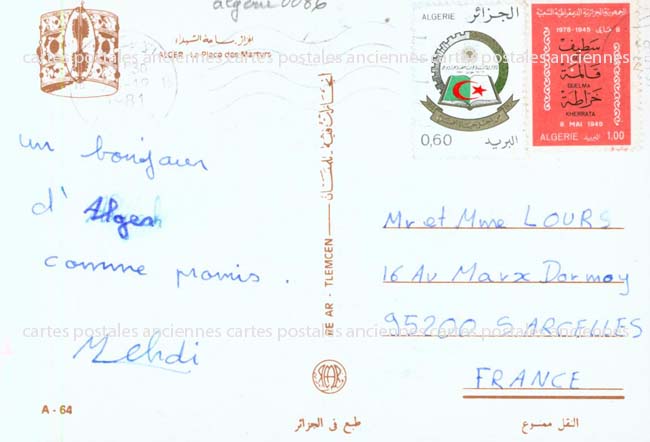 algerie 0086
الجزائر ـ ساحة الشهداء
ALGER - La Place des Martyrs
1981
الجزائر
ALGERIE
0,60
البريد
الجمهورية الجزائرية الديمقراطية الشعبية
1975-1945 8 ماي
سطيف
قالمة
GUELMA
خراطة
KHERRATA
8 MAI 1945
ALGERIE البريد 1.00
cartes postales anciennes cartes postales anciennes cartes postales anciennes
un bonjour
d' Alger
comme promis.
Mehdi
RE AR - TLEMCEN
Mr et Mme LOURS
16 Av Marx Dormoy
95200 SARCELLES
FRANCE
cartes postales anciennes cartes postales anciennes cartes postales anciennes
A - 64
طبع في الجزائر
النقل ممنوع